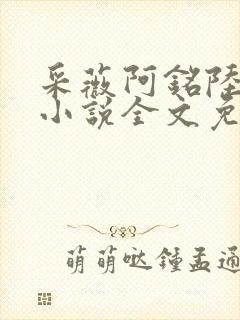 采薇阿銘陸
小說全文免
萌萌哒鍾孟通